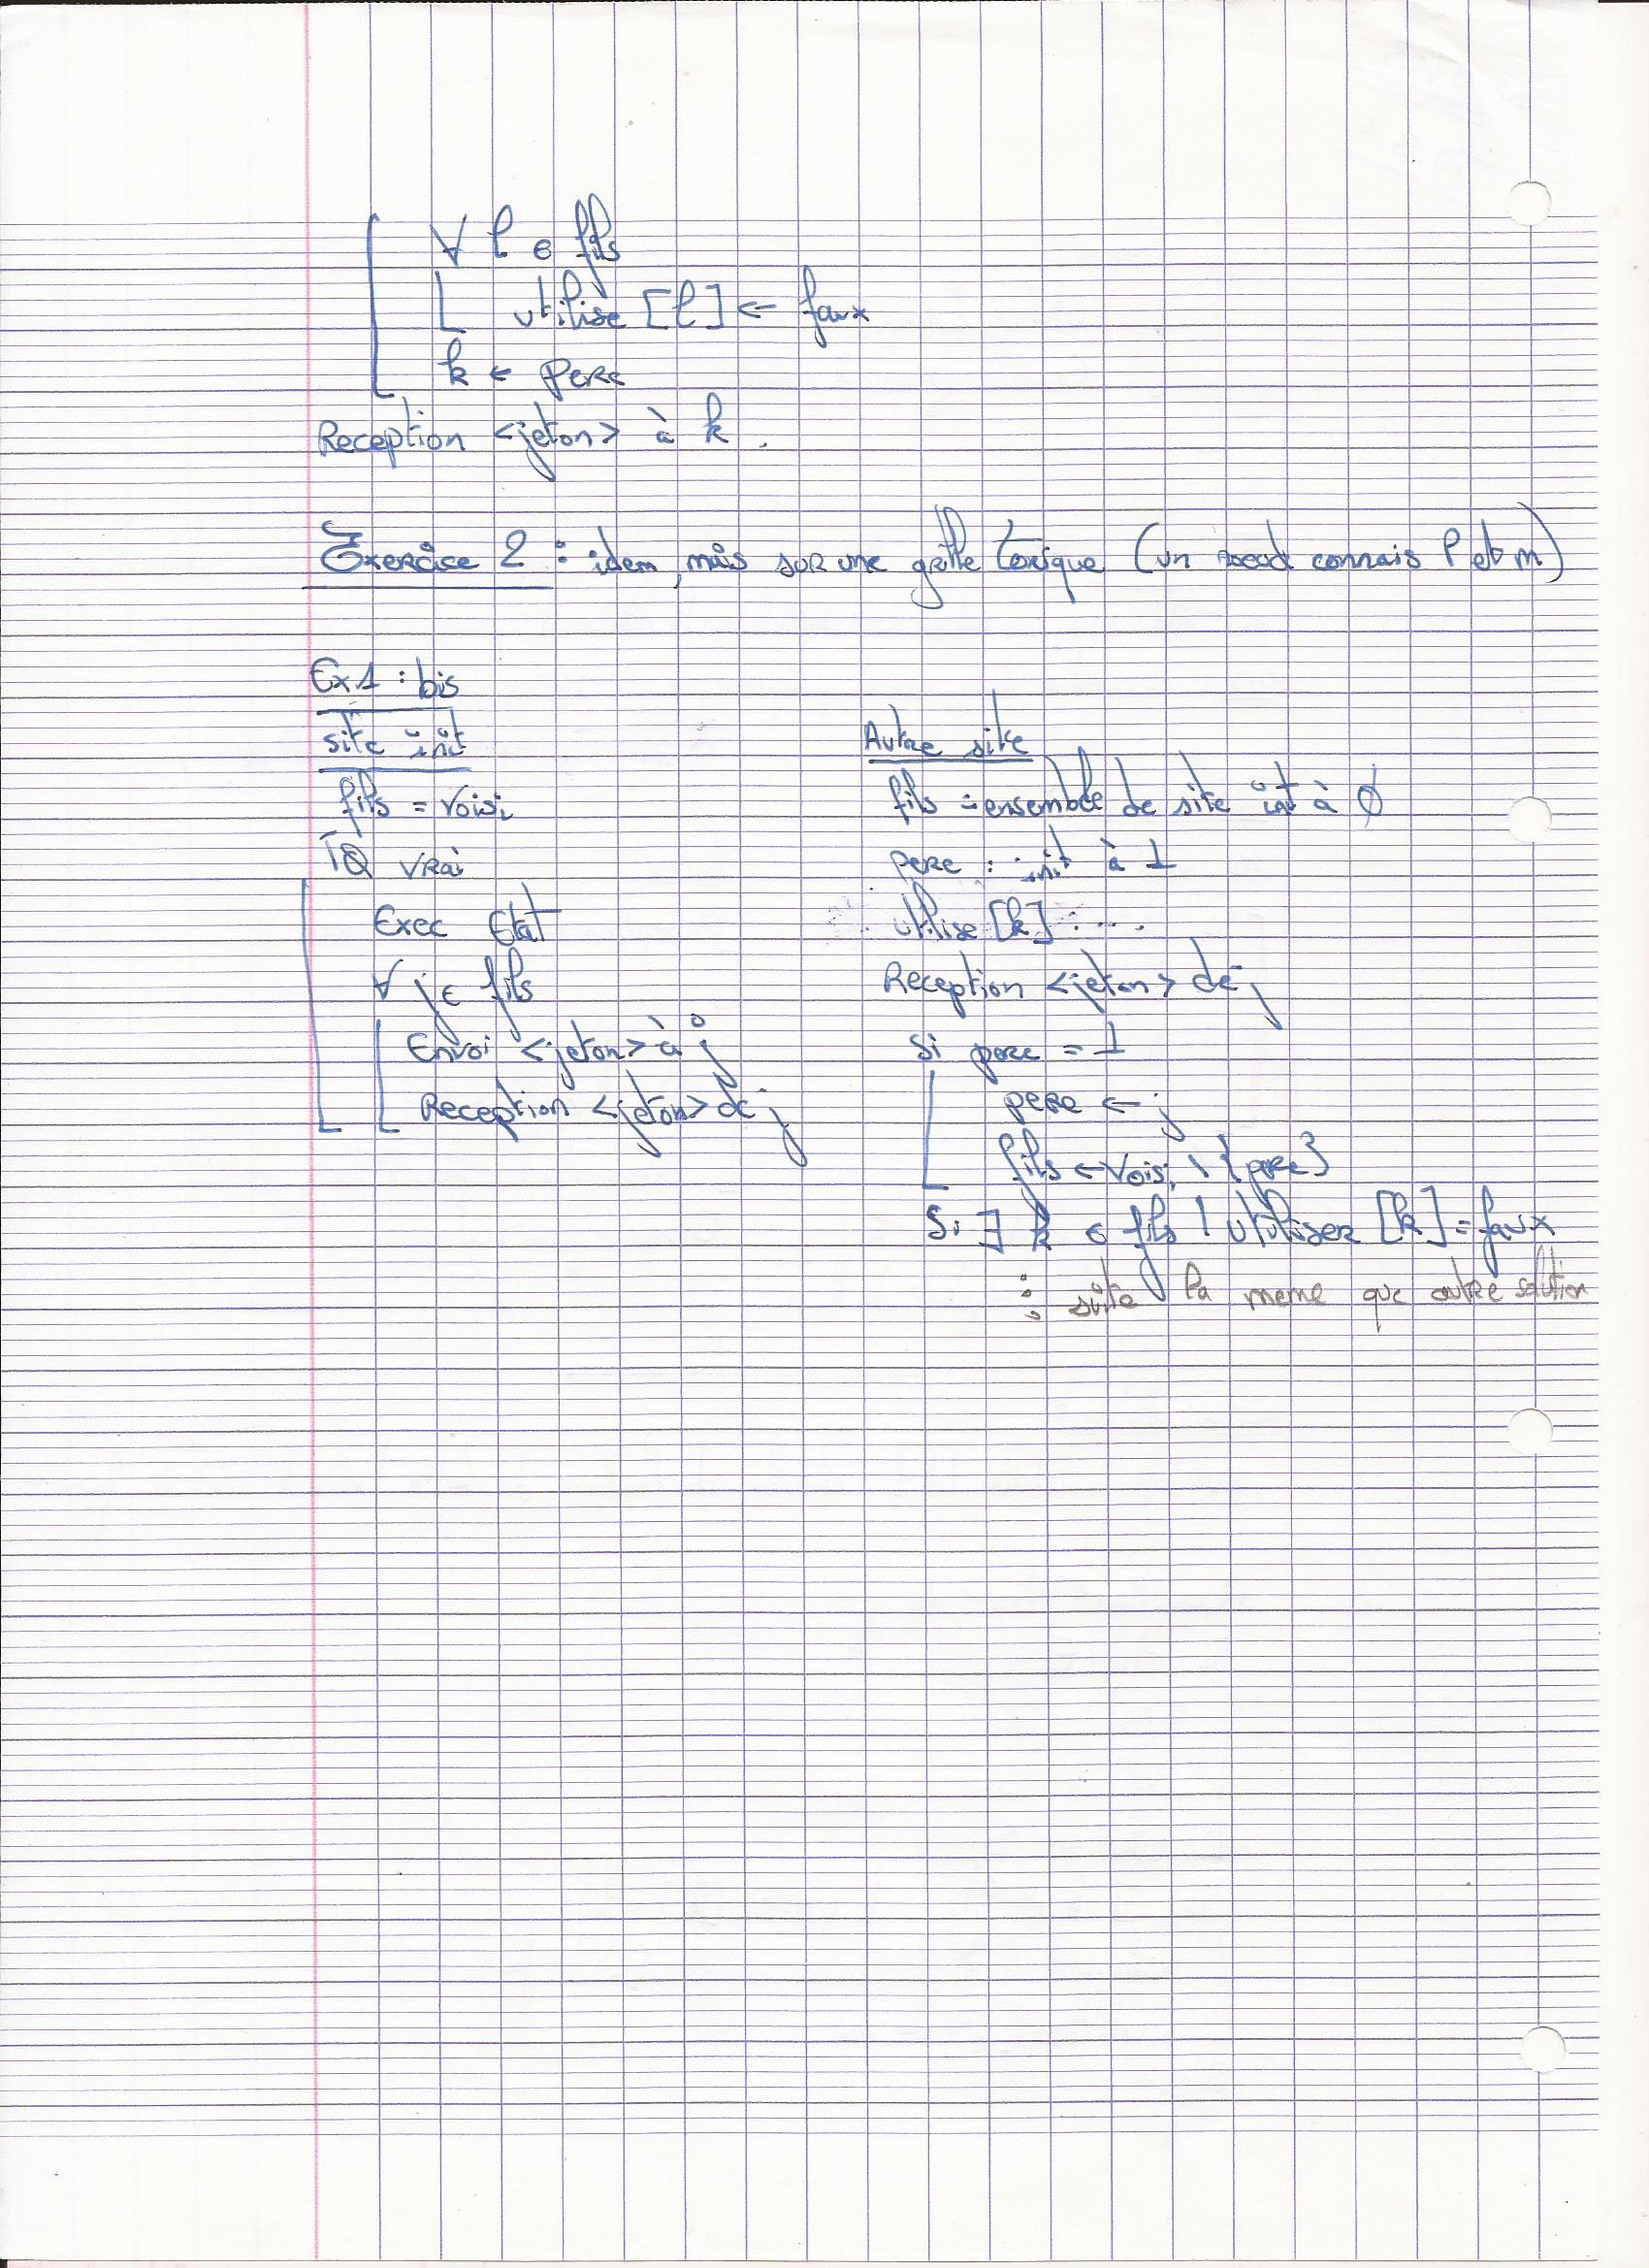 ∀ l ∈ fils
utilise [l] ← faux
k ← pere
Reception <jeton> à k.
Exercice 2 : idem, mais sur une grille torique (un noeud connais l et m)
Ex1 : bis
site init
fils = Voisi
TQ vrai
Exec Etat
∀ j ∈ fils
Envoi <jeton> à j
Reception <jeton> de j
Autre site
fils = ensemble de site init à ∅
pere : init à ⊥
utilise [k] : ...
Reception <jeton> de j
Si pere = ⊥
pere ← j
fils ← Voisi \ {pere}
Si ∃ k ∈ fils | utiliser [k] = faux
⋮ suite la meme que autre solution